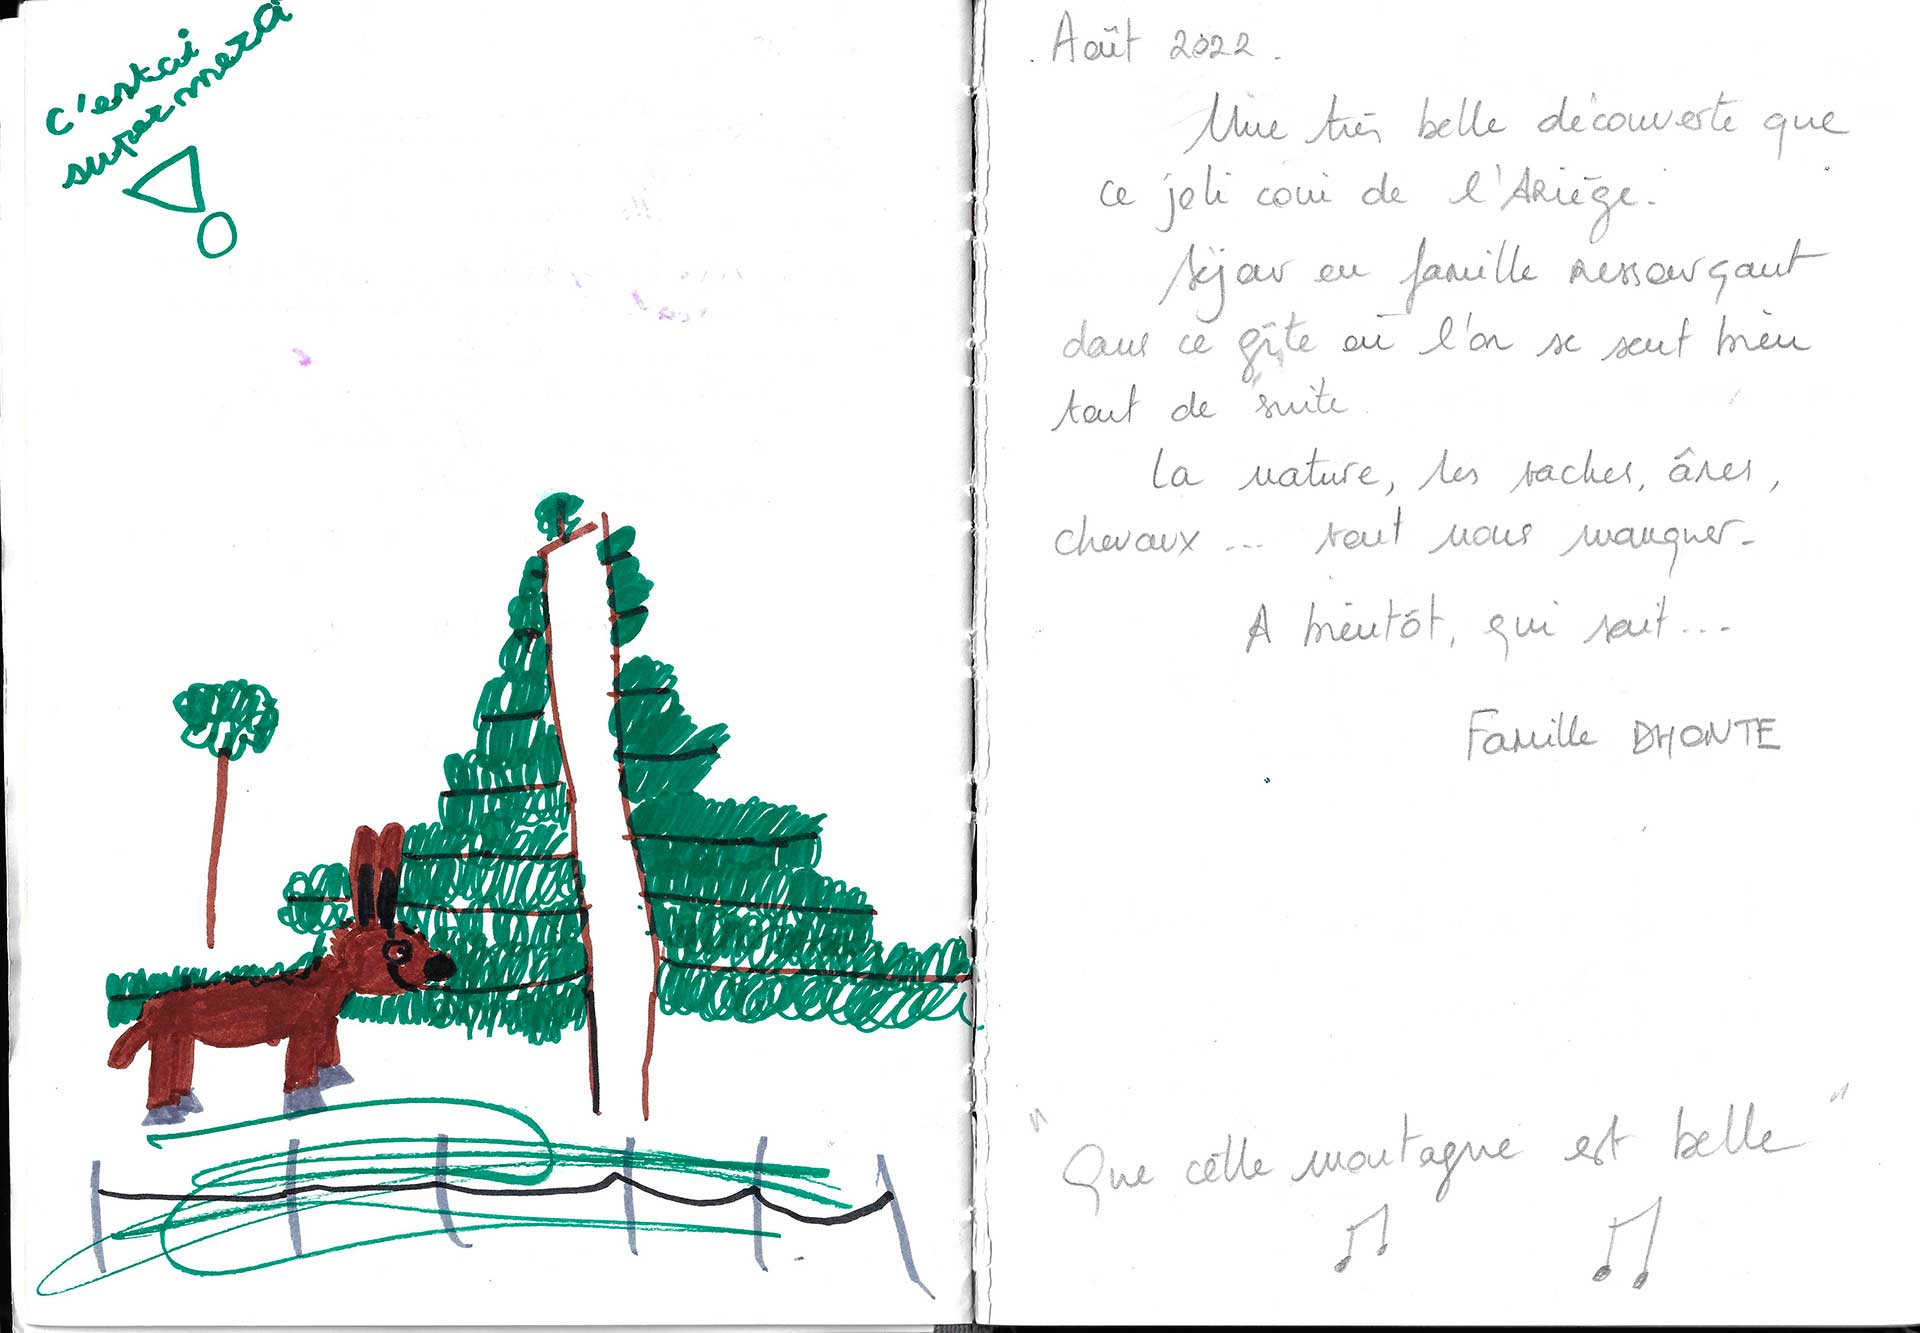 c'estai
super mera
!
Août 2022.
Une très belle découverte que
ce joli coin de l'Ariège.
Séjour en famille ressourçant
dans ce gîte où l'on se sent bien
tout de suite.
La nature, les vaches, ânes,
chevaux... vont nous manquer.
A bientôt, qui sait...
Famille DHONTE
"Que cette montagne est belle"